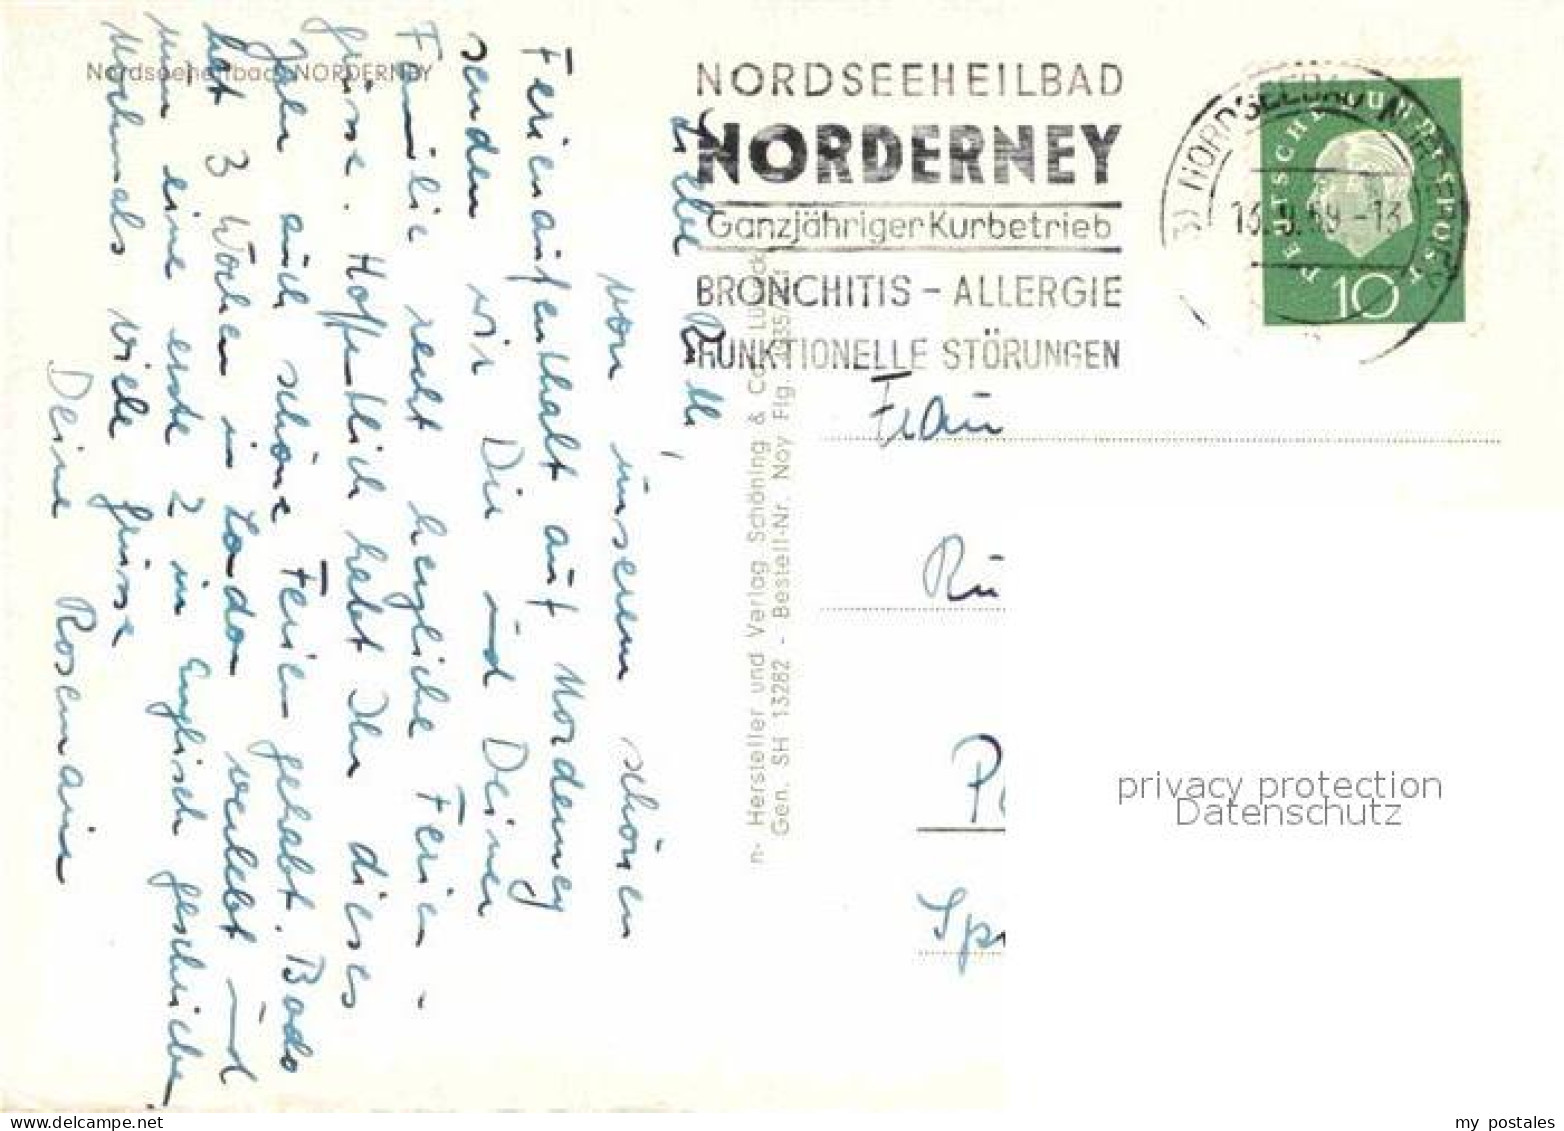 Nordseeheilbad NORDERNEY
Liebe Ruth,
von unserem schönen
Ferienaufenthalt auf Norderney
senden wir Dir und Deiner
Familie recht herzliche Ferien-
grüsse. Hoffentlich habt Ihr dieses
Jahr auch schöne Ferien gehabt. Bodo
hat 3 Wochen in London verlebt und
nun eine erste 2 in Englisch geschrieben
Nochmals viele Grüsse
Deine Rosemarie
n- Hersteller und Verlag Schöning & Co Lübeck
Gen. SH 13282 - Bestell-Nr. Noy Flg.
NORDSEEHEILBAD
NORDERNEY
Ganzjähriger Kurbetrieb
BRONCHITIS – ALLERGIE
FUNKTIONELLE STÖRUNGEN
NORDSEEBAD NORDERNEY
DEUTSCHE BUNDESPOST
10
Frau
Ru
Sp
privacy protection
Datenschutz
my postales